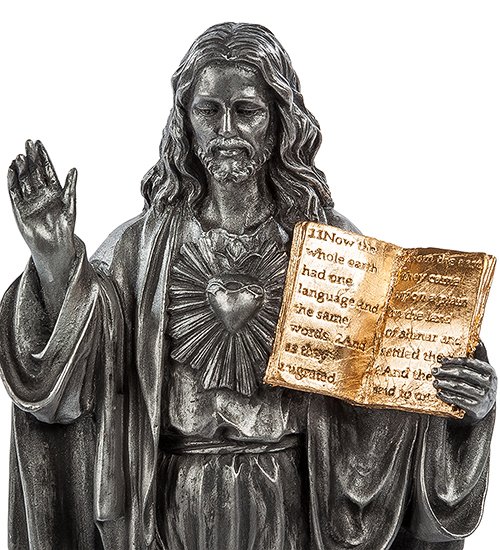 11Now the
whole earth
had one
language and
the same
words. 2And
as they
from the east
they came
upon a plain
in the land
of shinar and
settled the
And the